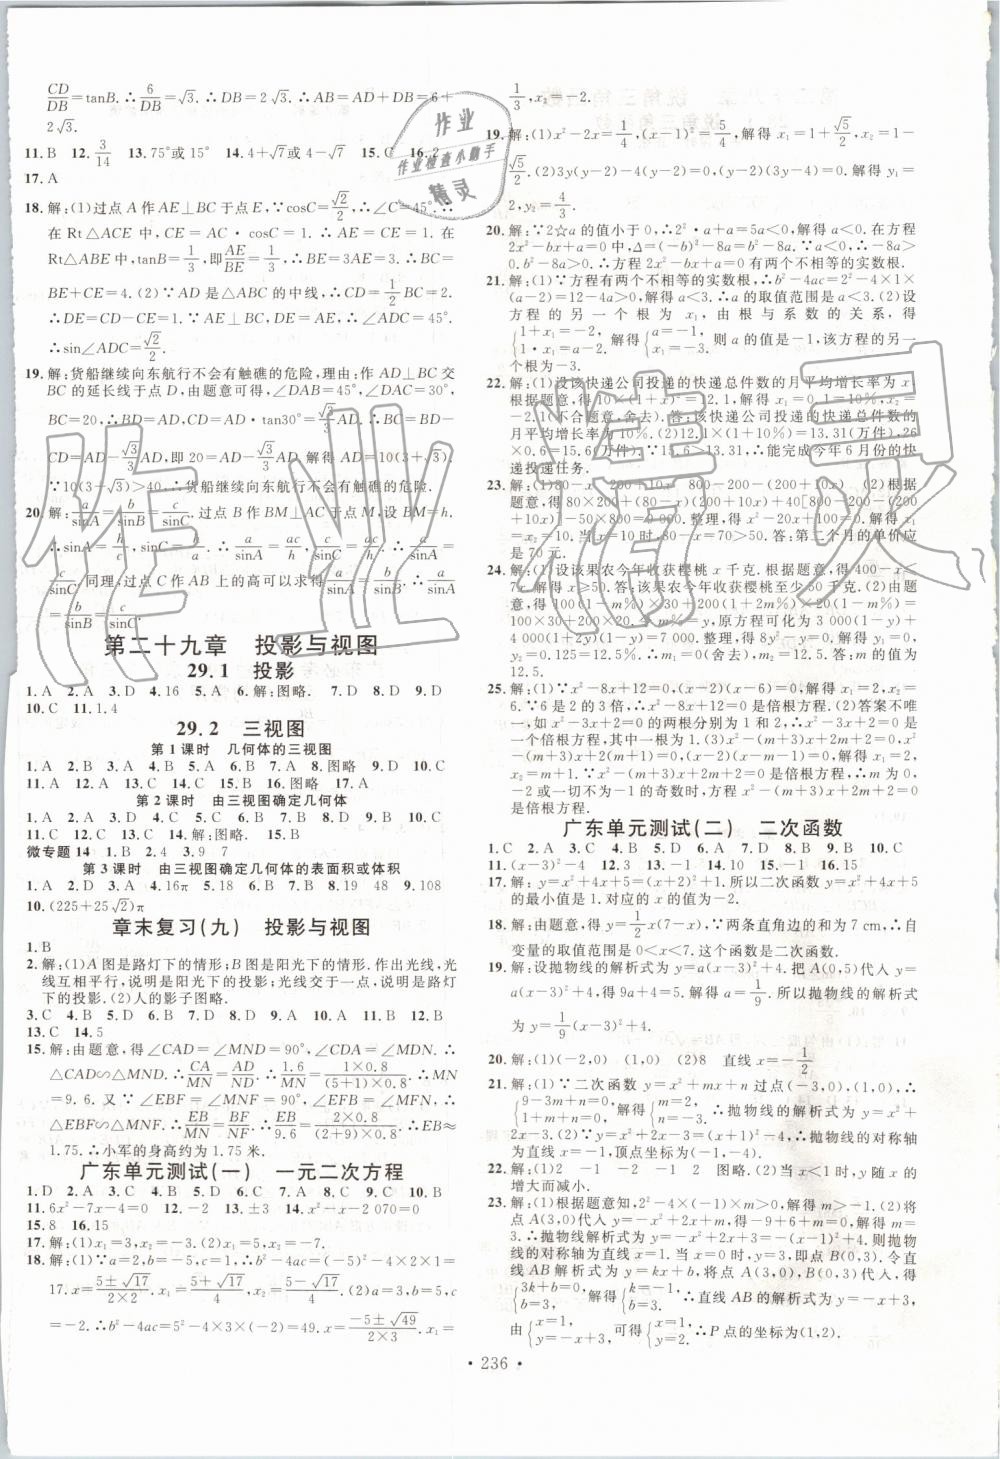 CD/DB=tanB.∴6/DB=√3.∴DB=2√3.∴AB=AD+DB=6+
2√3.
11.B 12.3/14 13.75°或15° 14.4+√7或4-√7 15.C 16.2
17.A
18.解:(1)过点A作AE⊥BC于点E,∵cosC=√2/2,∴∠C=45°.∴
在Rt△ACE中,CE=AC·cosC=1.∴AE=CE=1.在
Rt△ABE中,tanB=1/3,即AE/BE=1/3.∴BE=3AE=3.∴BC=
BE+CE=4.(2)∵AD是△ABC的中线,∴CD=1/2BC=2.
∴DE=CD-CE=1.∵AE⊥BC,DE=AE,∴∠ADC=45°.
∴sin∠ADC=√2/2.
19.解:货船继续向东航行不会有触礁的危险,理由:作AD⊥BC交
BC的延长线于点D,由题意可得,∠DAB=45°,∠DAC=30°,
BC=20.∴BD=AD,CD=AD·tan30°=√3/3AD.∴BC=BD-
CD=AD-√3/3AD,即20=AD-√3/3AD.解得AD=10(3+√3).
∵10(3+√3)>40,∴货船继续向东航行不会有触礁的危险.
20.解:a/sinA=b/sinB=c/sinC.过点B作BM⊥AC于点M,设BM=h.
同理,过点C作AB上的高可以求出
a/sinA=b/sinB=c/sinC.
第二十九章 投影与视图
29.1 投影
1.A 2.A 3.D 4.16 5.A 6.解:图略. 7.D 8.D 9.D
10.C 11.1.4
29.2 三视图
第1课时 几何体的三视图
1.A 2.A 3.B 4.C 5.A 6.C 7.B 8.D 9.D 10.C
11.A 12.A 13.C 14.C 15.B 16.图略 17.A
第2课时 由三视图确定几何体
1.A 2.B 3.D 4.C 5.C 6.B 7.B 8.B 9.B 10.C
11.C 12.C 13.C 14.解:图略. 15.B
微专题14 1.B 2.4 3.9 7
第3课时 由三视图确定几何体的表面积或体积
1.A 2.D 3.A 4.16π 5.18 6.B 7.B 8.19 48 9.108
10.(225+25√2)π
章末复习(九) 投影与视图
1.B
2.解:(1)A图是路灯下的情形;B图是阳光下的情形.作出光线,光
线互相平行,说明是阳光下的投影;光线交于一点,说明是路灯
下的投影.(2)人的影子图略.
3.C 4.C 5.A 6.D 7.C 8.D 9.D 10.B 11.A 12.B
13.C 14.5
15.解:由题意,得∠CAD=∠MND=90°,∠CDA=∠MDN.∴
△CAD∽△MND.∴CA/MN=AD/ND.∴1.6/MN=1×0.8/(5+1)×0.8.∴MN
=9.6.又∵∠EBF=∠MNF=90°,∠EFB=∠MFN,∴
△EBF∽△MNF.∴EB/MN=BF/NF.∴EB/9.6=2×0.8/(2+9)×0.8.∴EB≈
1.75.∴小军的身高约为1.75米.
广东单元测试(一) 一元二次方程
1.D 2.A 3.C 4.A 5.D 6.D 7.D 8.A 9.D 10.B
11.6x²-7x-4=0 12.-2 13.±3 14.x²-x-2 070=0
15.8 16.15
17.解:(1)x₁=3,x₂=-3.(2)x₁=5,x₂=-7.
18.解:(1)∵a=2,b=-5,c=1,∴b²-4ac=(-5)²-4×2×1=
17.x=5±√17/2×2,x₁=5+√17/4,x₂=5-√17/4.(2)a=3,b=5,c
=-2.∴b²-4ac=5²-4×3×(-2)=49.x=-5±√49/2×3.x₁=
1/3,x₂=-2.
19.解:(1)x²-2x=1/4,x²-2x+1=5/4,解得x₁=1+√5/2,x₂=1-
√5/2.(2)3y(y-2)=4(y-2),(y-2)(3y-4)=0,解得y₁=
2,y₂=4/3.
20.解:∵2☆a的值小于0,∴2²·a+a=5a<0,解得a<0.在方程
2x²-bx+a=0中,Δ=(-b)²-8a=b²-8a.∵a<0,∴-8a>
0.∴b²-8a>0.∴方程2x²-bx+a=0有两个不相等的实数根.
21.解:(1)∵方程有两个不相等的实数根,∴b²-4ac=2²-4×1×
(a-2)=12-4a>0,解得a<3.∴a的取值范围是a<3.(2)设
方程的另一个根为x₁,由根与系数的关系,得
{1+x₁=-2,1·x₁=a-2.解得{a=-1,x₁=-3.则a的值是-1,该方程的另一
个根为-3.
22.解:(1)设该快递公司投递的快递总件数的月平均增长率为x.
根据题意,得10×(1+x)²=12.1,解得x₁=0.1=10%,x₂=
-2.1(不合题意,舍去).答:该快递公司投递的快递总件数的
月平均增长率为10%.(2)12.1×(1+10%)=13.31(万件),26
×0.6=15.6(万件).∵15.6>13.31,∴能完成今年6月份的快
递投递任务.
23.解:(1)80-x 200+10x 800-200-(200+10x) (2)根据
题意,得80×200+(80-x)(200+10x)+40[800-200-(200
+10x)]-50×800=9 000.整理,得x²-20x+100=0.解得x₁=
x₂=10.当x=10时,80-x=70>50.答:第二个月的单价应
是70元.
24.解:(1)设该果农今年收获樱桃x千克.根据题意,得400-x≤
7x.解得x≥50.答:该果农今年收获樱桃至少50千克.(2)由
题意,得100(1-m%)×30+200×(1+2m%)×20(1-m%)
=100×30+200×20,令m%=y,原方程可化为3 000(1-y)+
4 000(1+2y)(1-y)=7 000,整理,得8y²-y=0.解得y₁=0,
y₂=0.125.∴m₁=0(舍去),m₂=12.5.∴m₂=12.5.答:m的值
为12.5.
25.解:(1)∵x²-8x+12=0,∴(x-2)(x-6)=0.解得x₁=2,x₂=
6.∵6是2的3倍,∴x²-8x+12=0是倍根方程.(2)答案不唯
一,如x²-3x+2=0的两根分别为1和2,∴x²-3x+2=0是一
个倍根方程,其中m=-3,n=2.(3)x²-(m-1)x-
2m-2=0,x²-(m-1)x-2(m+1)=0.
是倍根方程.∴m为0,
-2或一切不为-1的奇数时,方程x²-(m-1)x-2m-2=0是
倍根方程.
广东单元测试(二) 二次函数
1.C 2.C 3.C 4.B 5.C 6.A 7.D 8.B 9.B 10.C
11.(x-3)²-4 12.3 13.-1 14.10 15.-1 16.15
17.解:y=x²+4x+5=(x+2)²+1.所以二次函数y=x²+4x+5
的最小值是1.对应的x的值为-2.
18.解:由题意,得y=1/2x(7-x),∵两条直角边的和为7cm,∴自
变量的取值范围是0<x<7.这个函数是二次函数.
19.解:设抛物线的解析式为y=a(x-3)²+4.把A(0,5)代入y=
a(x-3)²+4,得9a+4=5.解得a=1/9.所以抛物线的解析式
为y=1/9(x-3)²+4.
20.解:(1)(-2,0) (1,0) (2)8 直线x=-1/2
21.解:(1)∵二次函数y=x²+mx+n过点(-3,0),(1,0),∴
{9-3m+n=0,1+m+n=0.解得{m=2,n=-3.∴抛物线的解析式为y=x²+
2x-3.(2)∵y=x²+2x-3=(x+1)²-4,∴抛物线的对称轴
为直线x=-1,顶点坐标为(-1,-4).
22.解:(1)2 -1 -2 -1 2 图略.(2)当x<1时,y随x的
增大而减小.
23.解:(1)根据题意知,2²-4×(-1)×m>0,解得m>-1.(2)将
点A(3,0)代入y=-x²+2x+m,得-9+6+m=0.解得m=
3.∴抛物线解析式为y=-x²+2x+3=-(x-1)²+4,则抛物
线的对称轴为x=1.当x=0时,y=3,即点B(0,3).令直
线AB解析式为y=kx+b,将点A(3,0),B(0,3)代入,得
{3k+b=0,b=3,解得{k=-1,b=3.∴直线AB的解析式为y=-x+3.
由{x=1,y=-x+3,可得{x=1,y=2.∴P点的坐标为(1,2).
· 236 ·